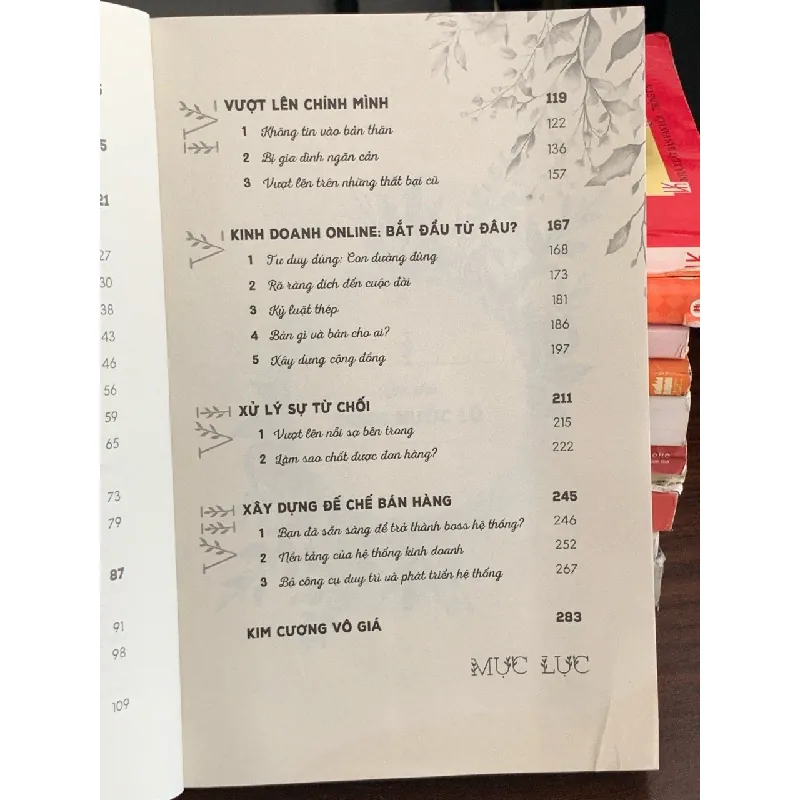 5
5
21
27
30
38
43
46
56
59
65
73
79
87
91
98
109
IV VƯỢT LÊN CHÍNH MÌNH 119
1 Không tin vào bản thân 122
2 Bị gia đình ngăn cản 136
3 Vượt lên trên những thất bại cũ 157
V KINH DOANH ONLINE: BẮT ĐẦU TỪ ĐÂU? 167
1 Tư duy đúng: Con đường đúng 168
2 Rõ ràng đích đến cuộc đời 173
3 Kỷ luật thép 181
4 Bán gì và bán cho ai? 186
5 Xây dựng cộng đồng 197
VI XỬ LÝ SỰ TỪ CHỐI 211
1 Vượt lên nỗi sợ bên trong 215
2 Làm sao chốt được đơn hàng? 222
VII XÂY DỰNG ĐẾ CHẾ BÁN HÀNG 245
1 Bạn đã sẵn sàng để trở thành boss hệ thống? 246
2 Nền tảng của hệ thống kinh doanh 252
3 Bộ công cụ duy trì và phát triển hệ thống 267
KIM CƯƠNG VÔ GIÁ 283
MỤC LỤC